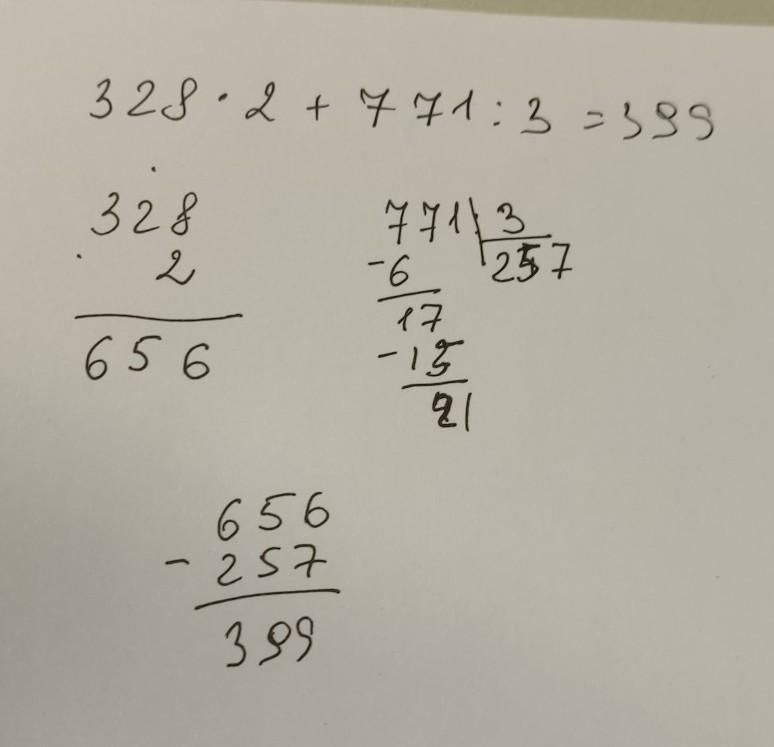 328 · 2 + 771 : 3 = 399
328
· 2
656
771 | 3
-6 257
17
-15
21
656
- 257
399